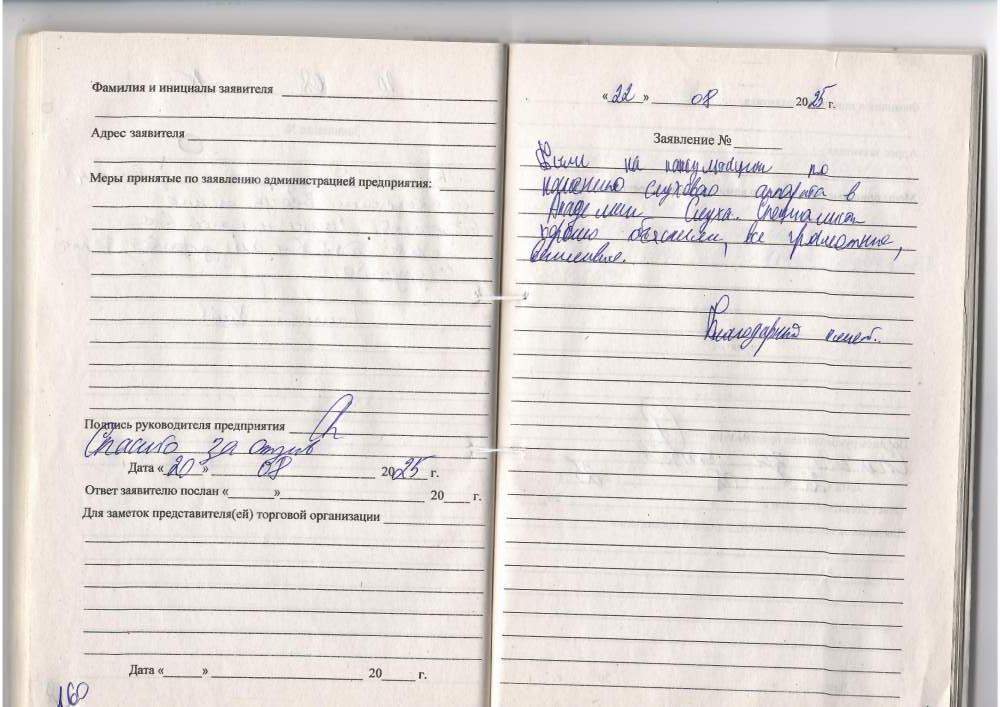 Фамилия и инициалы заявителя
Адрес заявителя
Меры принятые по заявлению администрацией предприятия:
Подпись руководителя предприятия
Спасибо за отзыв
Дата «20» 08 2025 г.
Ответ заявителю послан «______» 20____ г.
Для заметок представителя(ей) торговой организации
Дата «______» 20____ г.
160
«22» 08 2025 г.
Заявление №
Были на консультации по
ношению слухового аппарата в
Академии Слуха. Специалисты
хорошо объяснили, все грамотные,
вежливые.
Благодарный клиент.